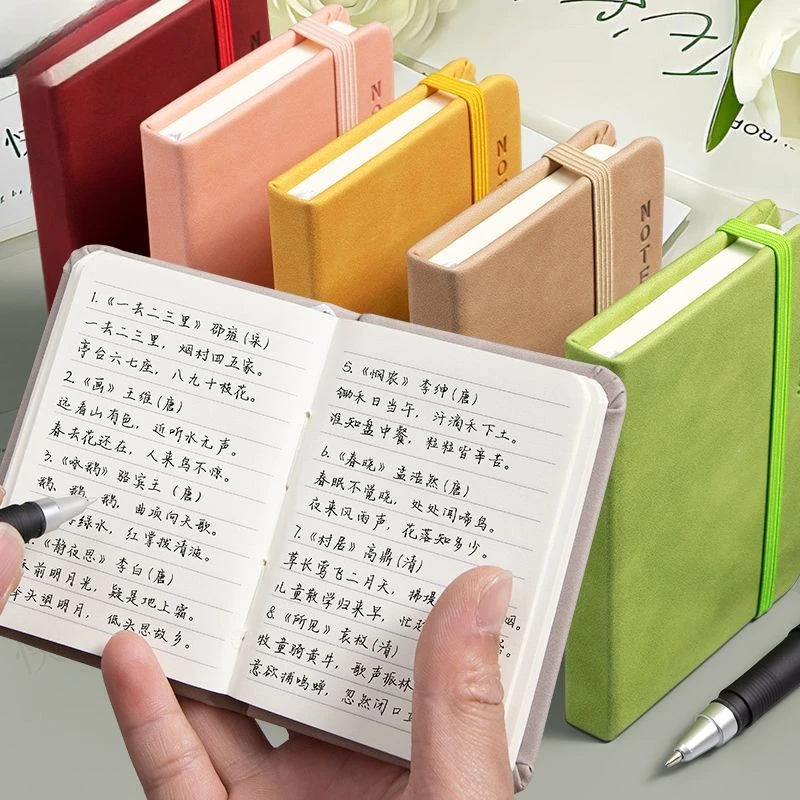 1.《一去二三里》邵雍(宋)
一去二三里，烟村四五家。
亭台六七座，八九十枝花。
2.《画》王维(唐)
远看山有色，近听水无声。
春去花还在，人来鸟不惊。
3.《咏鹅》骆宾王（唐）
鹅，鹅，鹅，曲项向天歌。
绿水，红掌拨清波。
《静夜思》李白(唐)
前明月光，疑是地上霜。
头望明月，低头思故乡。
5.《悯农》李绅(唐)
锄禾日当午，汗滴禾下土。
谁知盘中餐，粒粒皆辛苦。
6.《春晓》孟浩然(唐)
春眠不觉晓，处处闻啼鸟。
夜来风雨声，花落知多少。
7.《村居》高鼎(清)
草长莺飞二月天，拂堤 烟。
儿童散学归来早，忙趁
8.《所见》袁枚(清)
牧童骑黄牛，歌声振林
意欲捕鸣蝉，忽然闭口立
NOTE